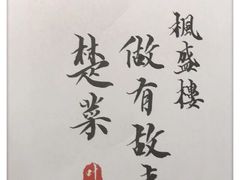 楓盛樓
做有故事
楚菜